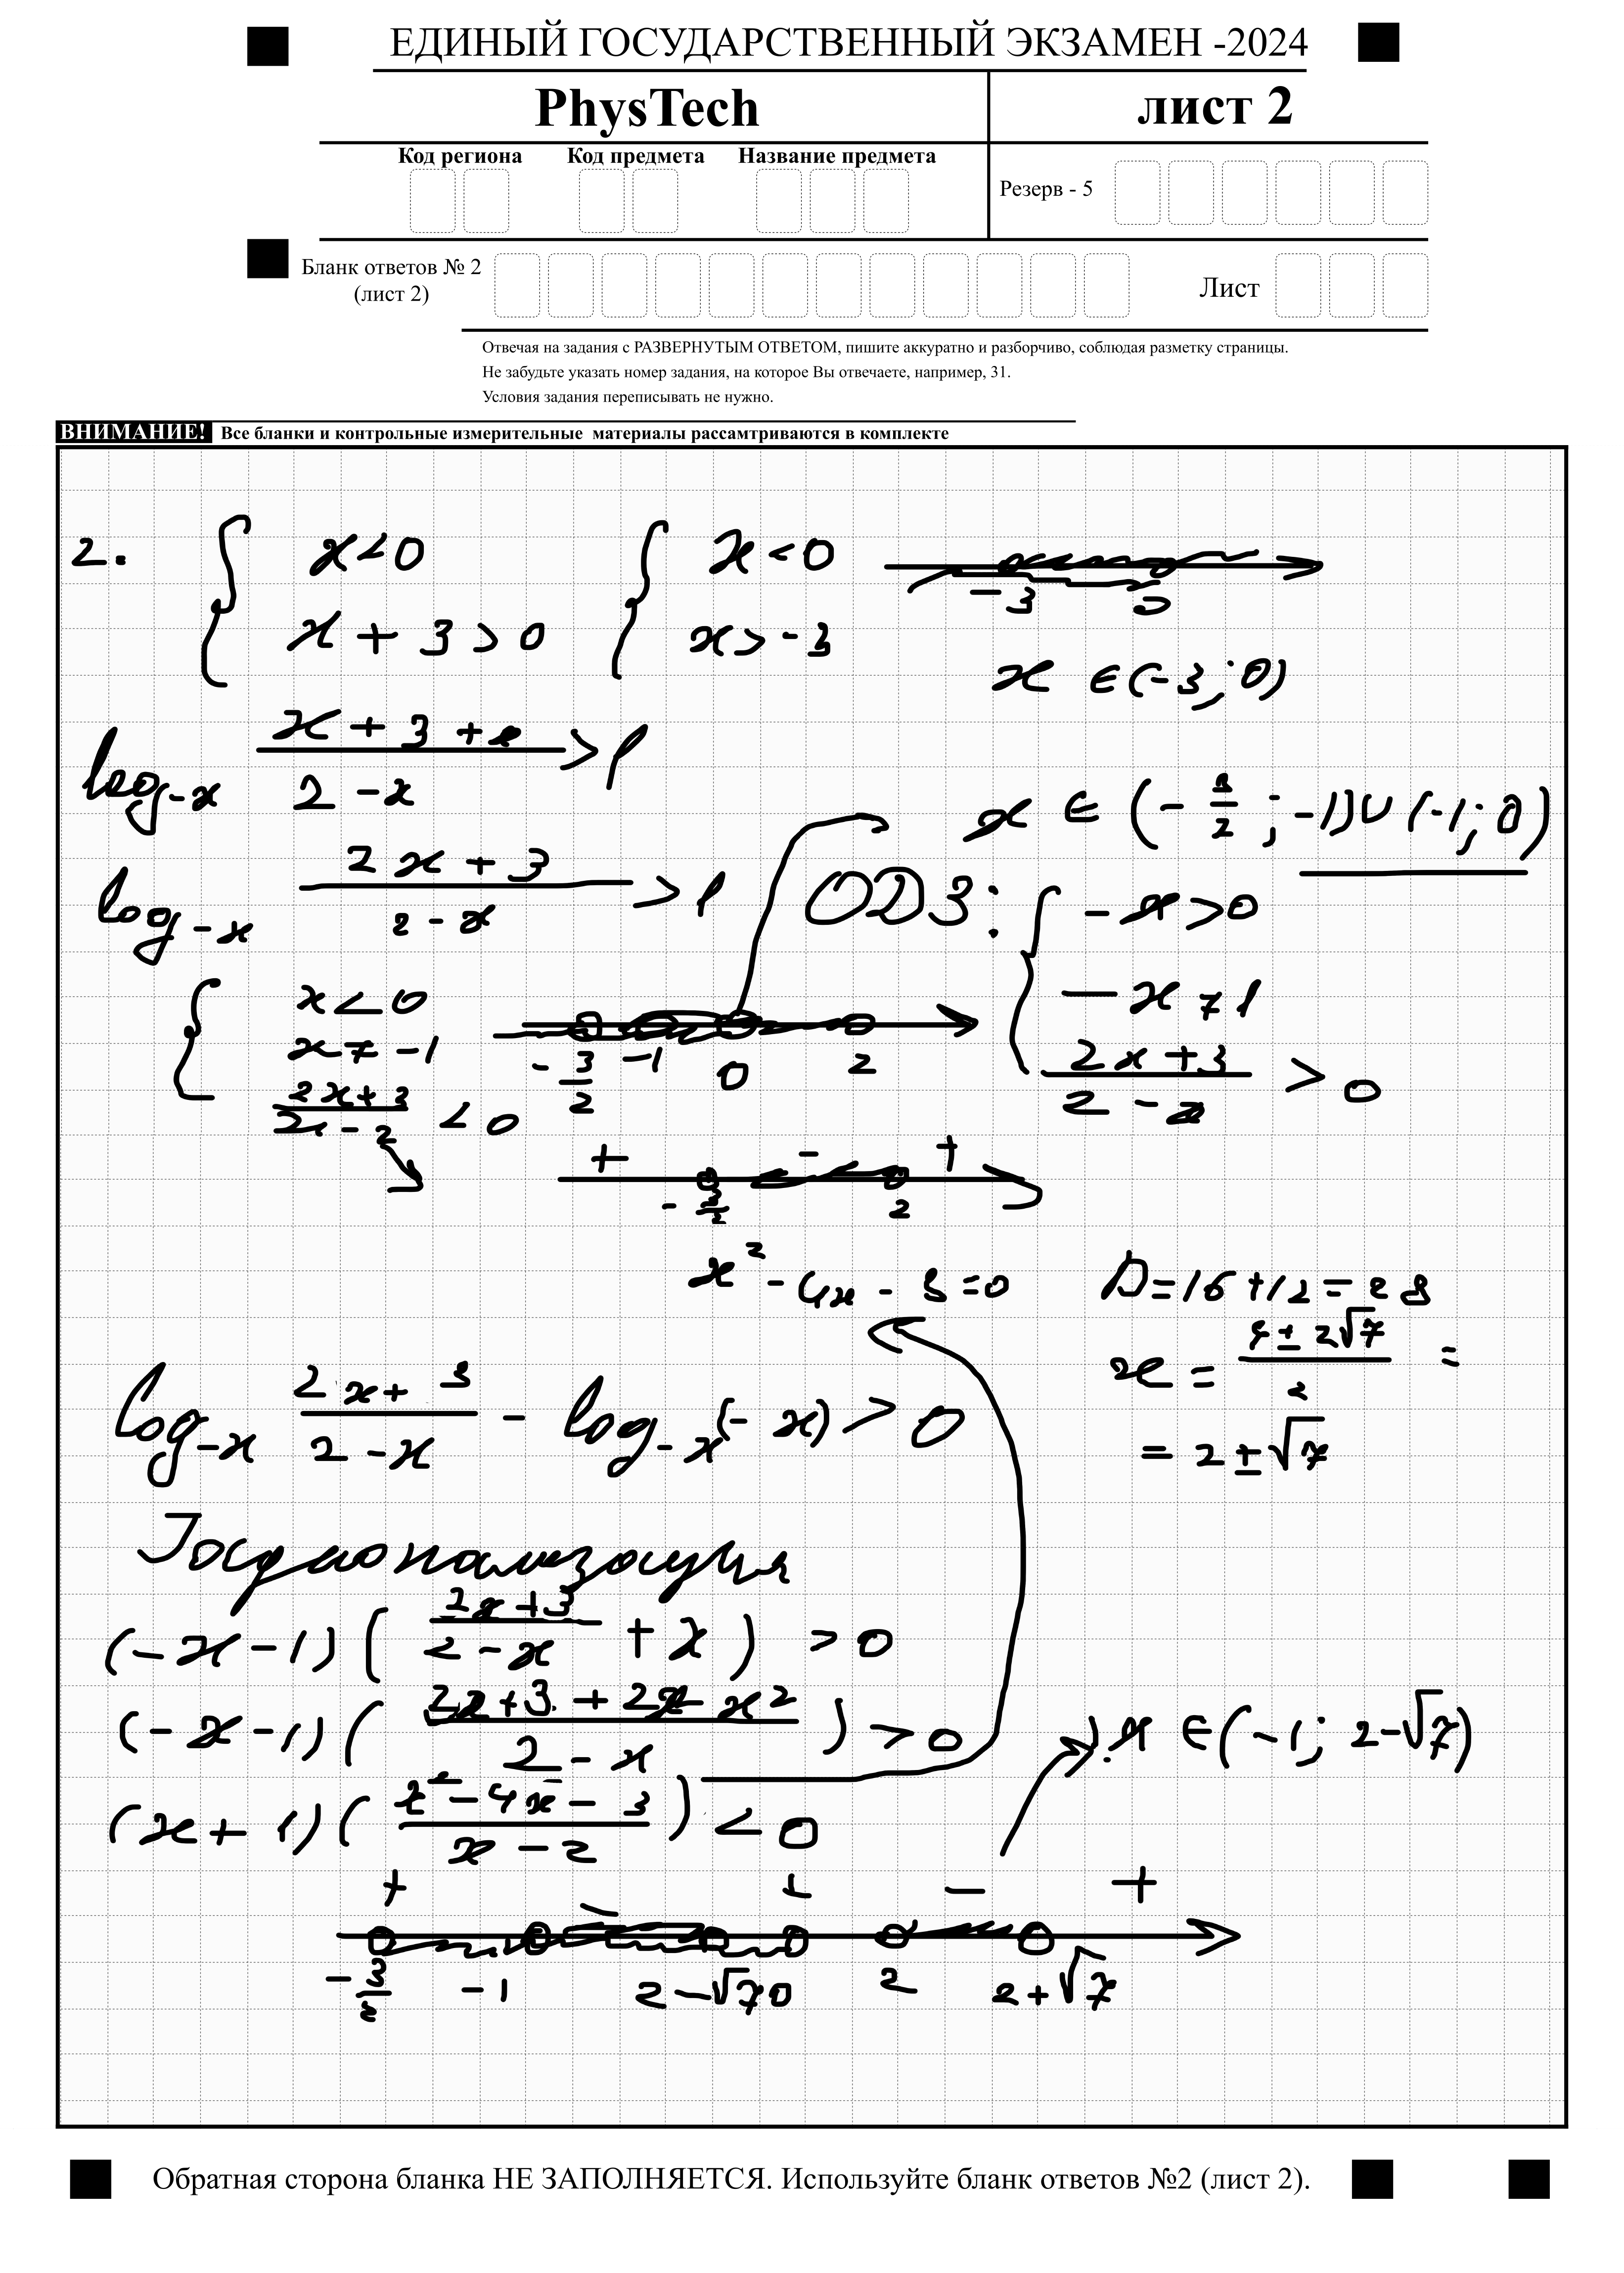 ЕДИНЫЙ ГОСУДАРСТВЕННЫЙ ЭКЗАМЕН -2024
PhysTech
лист 2
Код региона Код предмета Название предмета
Резерв - 5
Бланк ответов № 2
(лист 2)
Лист
Отвечая на задания с РАЗВЕРНУТЫМ ОТВЕТОМ, пишите аккуратно и разборчиво, соблюдая разметку страницы.
Не забудьте указать номер задания, на которое Вы отвечаете, например, 31.
Условия задания переписывать не нужно.
ВНИМАНИЕ! Все бланки и контрольные измерительные материалы рассамтриваются в комплекте
2. { x<0 { x<0 -3 0
x+3>0 x>-3
x ∈(-3; 0)
log_{-x} (x+3+x)/(2-x) >1
x ∈ (-3/2; -1)∪(-1; 0)
log_{-x} (2x+3)/(2-x) >1
ОДЗ: { -x>0
-x≠1
(2x+3)/(2-x) > 0
{ x<0
x≠-1
(2x+3)/(x-2) <0
-3/2 -1 0 2
+ - +
-3/2 2
x²-4x-3=0 D=16+12=28
x = (4±2√7)/2 =
= 2±√7
log_{-x} (2x+3)/(2-x) - log_{-x}(-x) > 0
(-x-1)((2x+3)/(2-x) + x) >0
(-x-1)((2x+3+2x-x²)/(2-x)) >0
x ∈(-1; 2-√7)
(x+1)((x²-4x-3)/(x-2)) <0
+ - + - +
-3/2 -1 2-√7 0 2 2+√7
Обратная сторона бланка НЕ ЗАПОЛНЯЕТСЯ. Используйте бланк ответов №2 (лист 2).